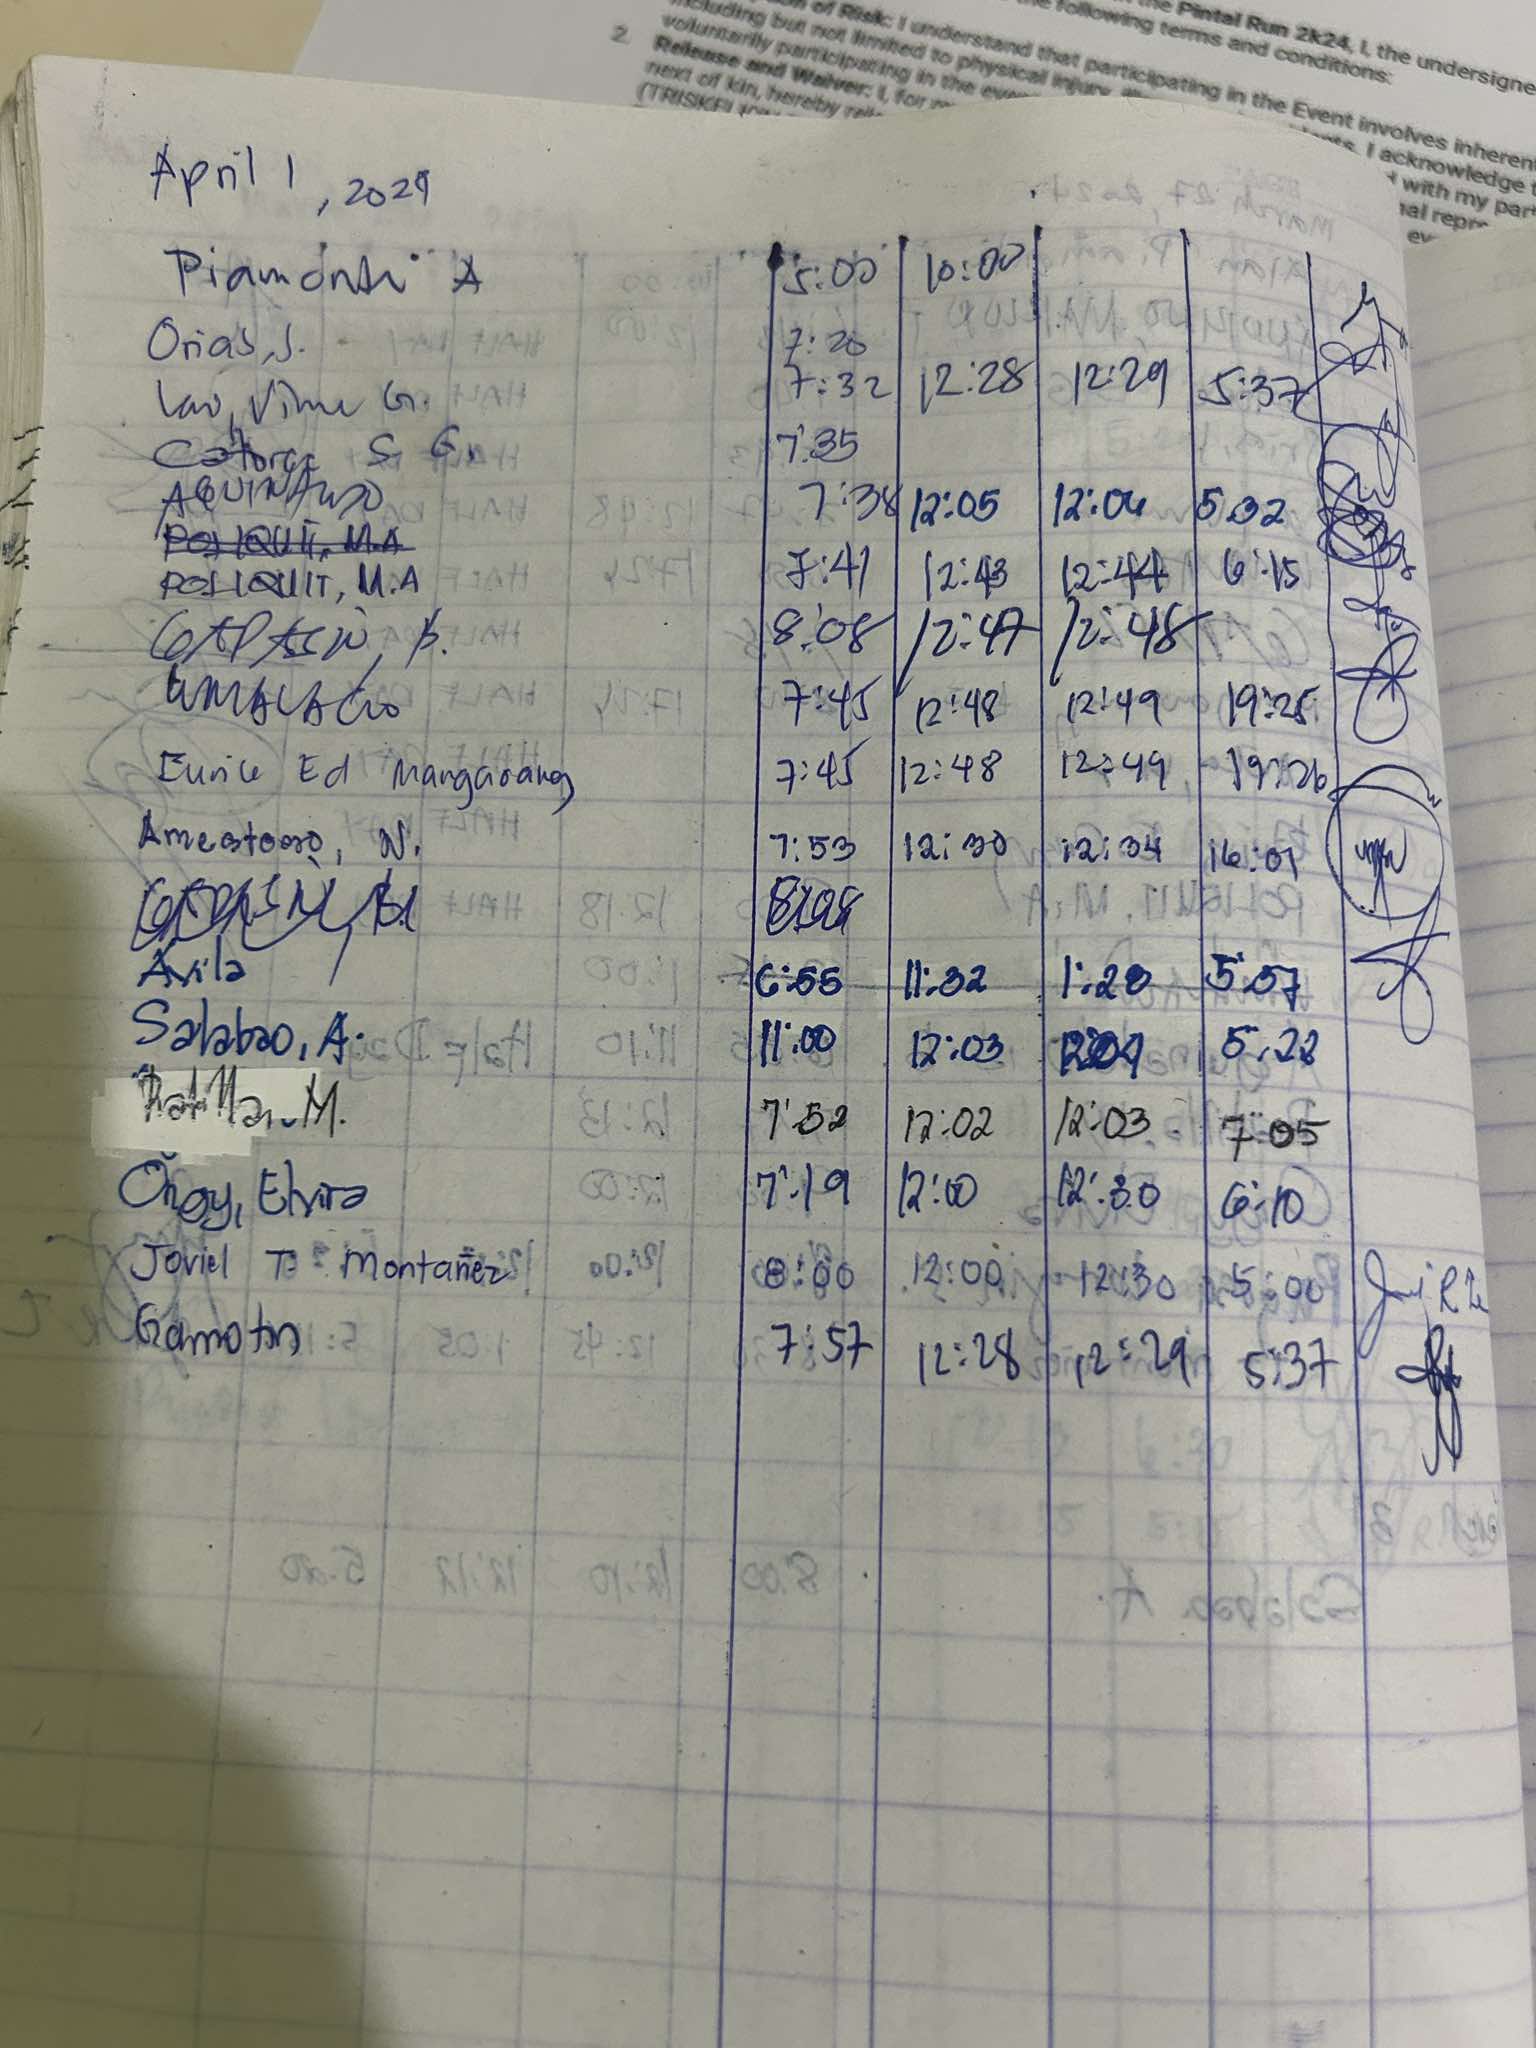 the Pintal Run 2k24, I, the undersigne
the following terms and conditions:
of Risk: I understand that participating in the Event involves inherent
including but not limited to physical injury,
voluntarily participating in the
I acknowledge
2. Release and Waiver: I, for
with my part
next of kin, hereby
April 1, 2024
A 5:00 10:00
Orias, J. 7:20
G. 7:32 12:28 12:29 5:37
S. G. 7:35
AQUINALDO 7:38 12:05 12:06 5:32
POLIQUIT, M.A
POLIQUIT, M.A 7:41 12:43 12:44 6:15
8:08 12:47 12:48
UMALACIO 7:45 12:48 12:49 19:25
Eunice Ed Mangarang 7:45 12:48 12:49 19:26
Amestoso, N. 7:53 12:30 12:34 16:01
Avila 6:55 11:32 1:28 5:57
Salabao, A. 11:00 12:03 5:22
M. 7:52 12:02 12:03 7:05
Ongy, Elvira 7:19 12:00 12:30 6:10
Joviel T. Montañez 8:00 12:00 12:30 5:00
Gamotan 7:57 12:28 12:29 5:37